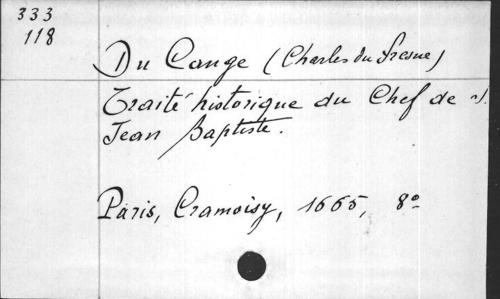 333
118
Du Cange (Charles du Fresne)
Traité historique du Chef de S.
Jean Baptiste.
Paris, Cramoisy, 1665, 8º